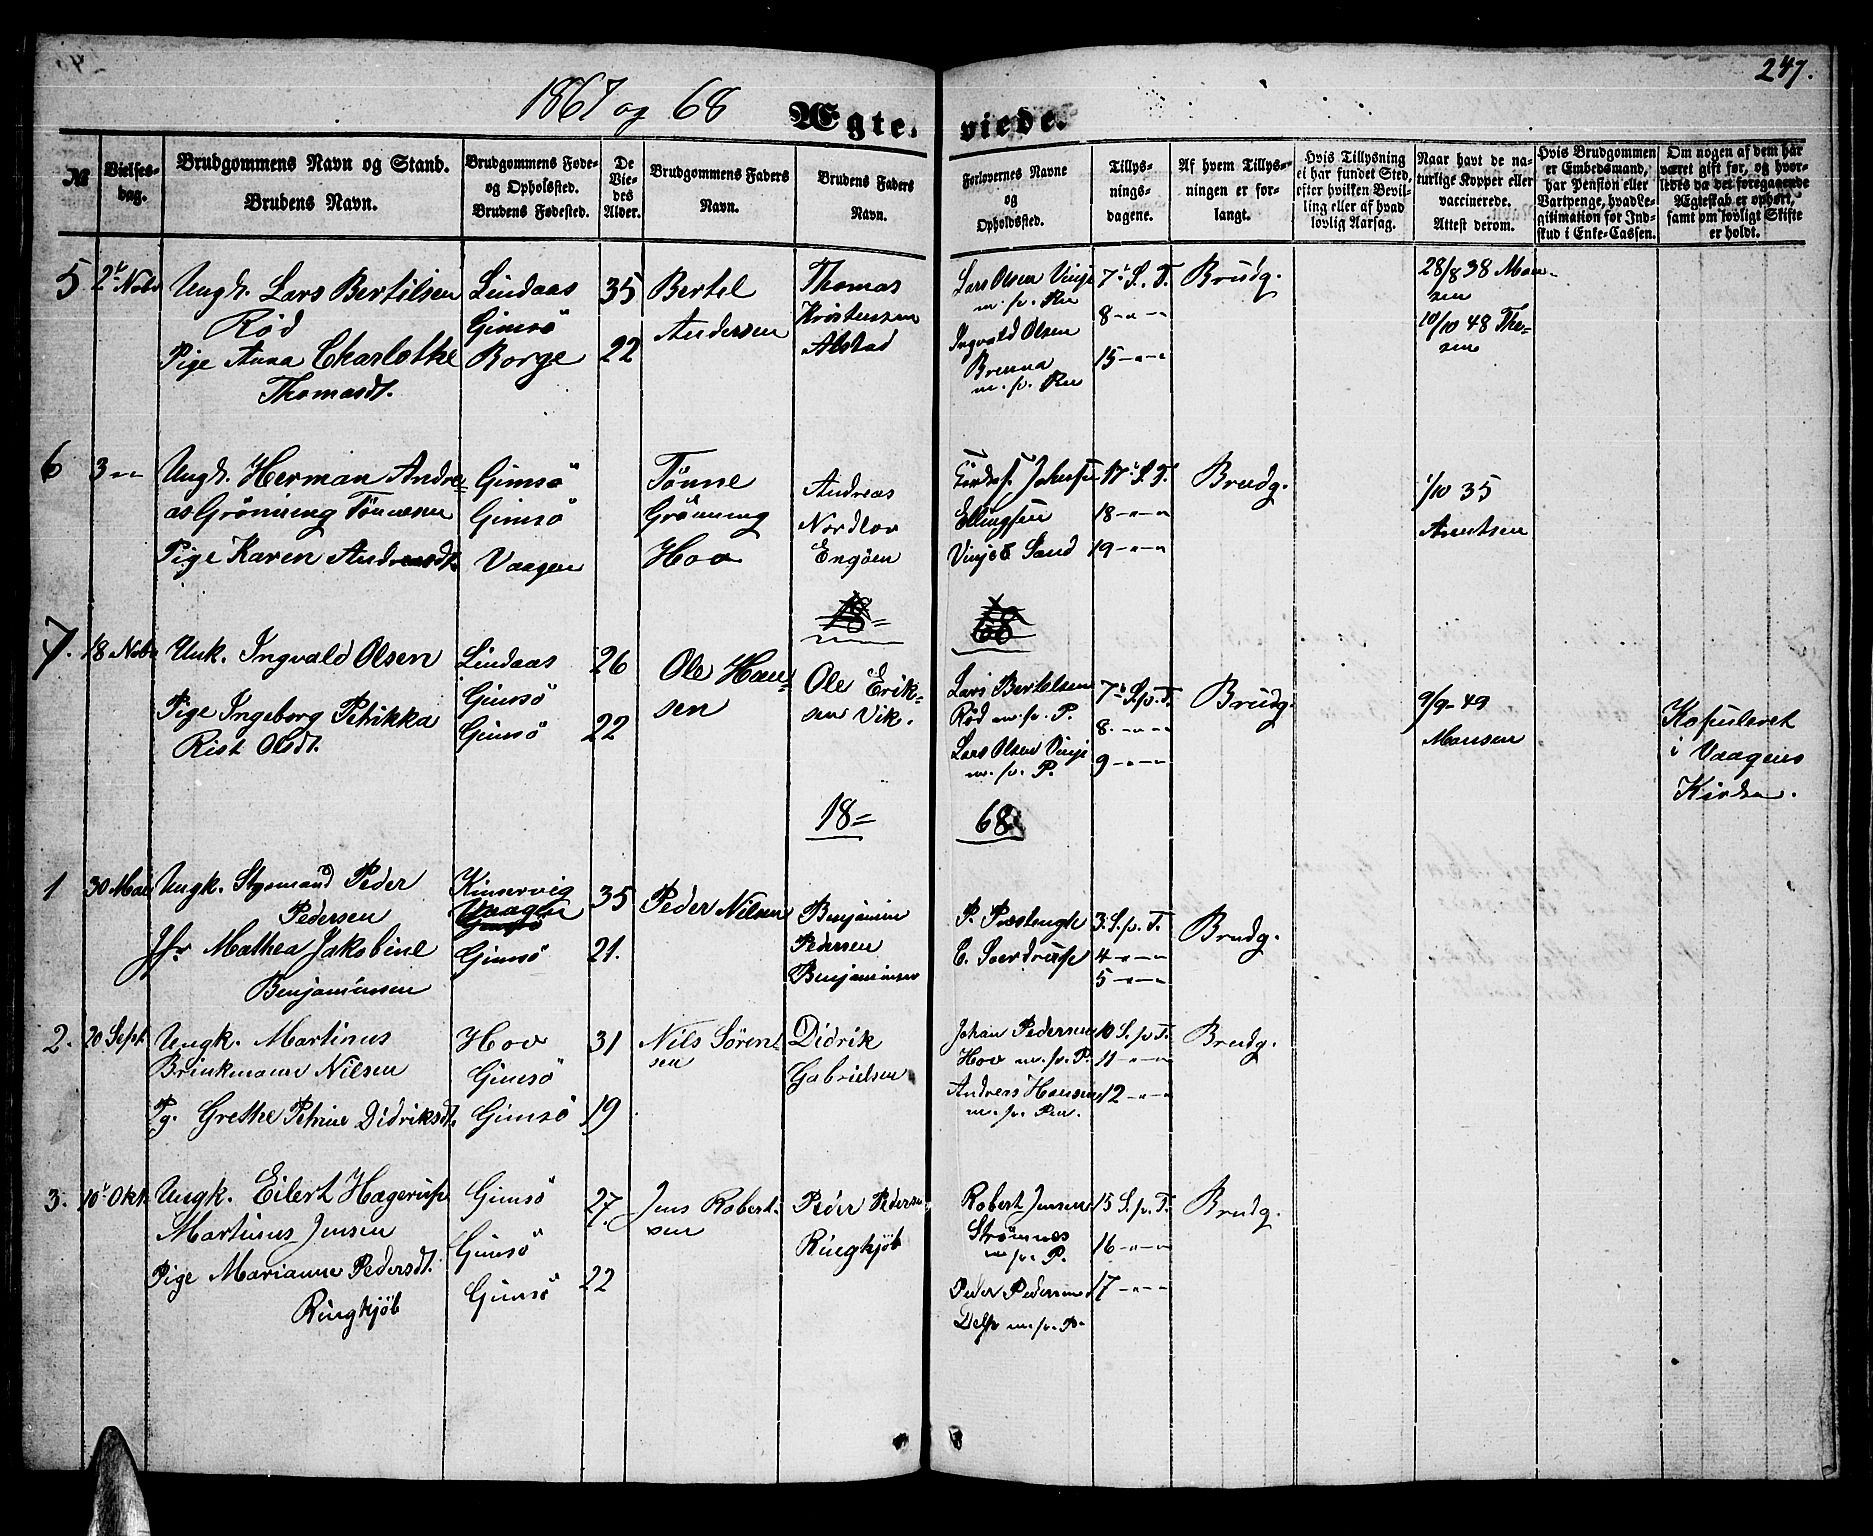 247.
1867 og 68
Ægte- viede.
№
Vielses-
dag.
Brudgommens Navn og Stand.
Brudens Navn.
Brudgommens Føde-
og Opholdssted.
Brudens Fødested.
De
Vie-
des
Alder.
Brudgommens Faders
Navn.
Brudens Faders
Navn.
Forlovernes Navne
og
Opholdssted.
Tillys-
nings-
dagene.
Af hvem Tillys-
ningen er for-
langt.
Hvis Tillysning
ei har fundet Sted,
efter hvilken Bevil-
ling eller af hvad
lovlig Aarsag.
Naar havt de na-
turlige Kopper eller
vaccinerede.
Attest derom.
Hvis Brudgommen
er Embedsmand,
har Pension eller
Vartpenge, hvad Le-
gitimation for Ind-
skud i Enke-Cassen.
Om nogen af dem har
været gift før, og hvor-
ledes da det foregaaende
Ægteskab er ophørt,
samt om lovligt Skifte
er holdt.
5 2' Novb Ungk. Lars Bertilsen Lindaas 35 Bertel Thomas Lars Olsen Vinje 7' S. T. Brudg. 28/8 38 Mon-
Rød Gimsö Andersen Kristensen m. p. Pen 8 - " - " sen
Pige Anna Charlothe Borge 22 Alstad Ingvald Olsen 10/10 48 The-
Thomasdt. Brenna 15 - " - " sen
m. p. Pen
6 3 " Ungk. Herman Andre- Gimsö Tönne Andreas Johnsen 17' S. T. Brudg. 1/10 35
as Grönning Tönnesen Gimsö Grönning Nordlov Ellingsen 18 - " - " Arentsen
Pige Karen Andreasdt. Vaagen Hov Engöen Sand 19 - " - "
18=
68
7. 18 Novb Unk. Ingvald Olsen Lindaas 26 Ole Han- Ole Erik- Lars Bertelsen 7' S. p. T. Brudg. 9/9 - 49
Gimsö sen sen Vik. Rød m. p. P. 8. - " - " Monsen
Pige Ingeborg Petrikka Gimsö 22 Lars Olsen Vinje 9 - " - " Kopuleret
Rist Olsdt. m. p. P. i Vaagens
Kirke.
18= 68
1 30 Mai Ungk. Stysmand Peder Kinservig 35 Peder Nilsen Benjamin P. 3. S. p. T. Brudg.
Pedersen Vaagen Gimsö Pedersen C. Sverdrup 4 - " - "
Jfr Mathea Jakobine Gimsö 21. Benjaminsen 5 - " - "
Benjaminsen
2. 20 Sept. Ungk. Martinus Hov 31 Nils Sören- Didrik Johan Pedersen 10 S. p. T. Brudg.
Brinkmann Nilsen Gimsö sen Gabrielsen Hov m. p. P. 11 - " - "
Pg. Grethe Petrine Didriksdt. Gimsö 19 Andreas Hansen 12 - " - "
m. p. Pen.
3. 10' Okt. Ungk. Eilert Hagerup Gimsö 27. Jens Robert- Peder Pedersen Robert Jensen 15 S. p. T. Brudg.
Martinus Jensen Gimsö sen Ringkjöb Strömnes 16 - " - "
m. p. P.
Pige Marianne Pedersdt. Gimsö 22 Peder Pedersen 17 - " - "
Ringkjöb Delp m. p. P.